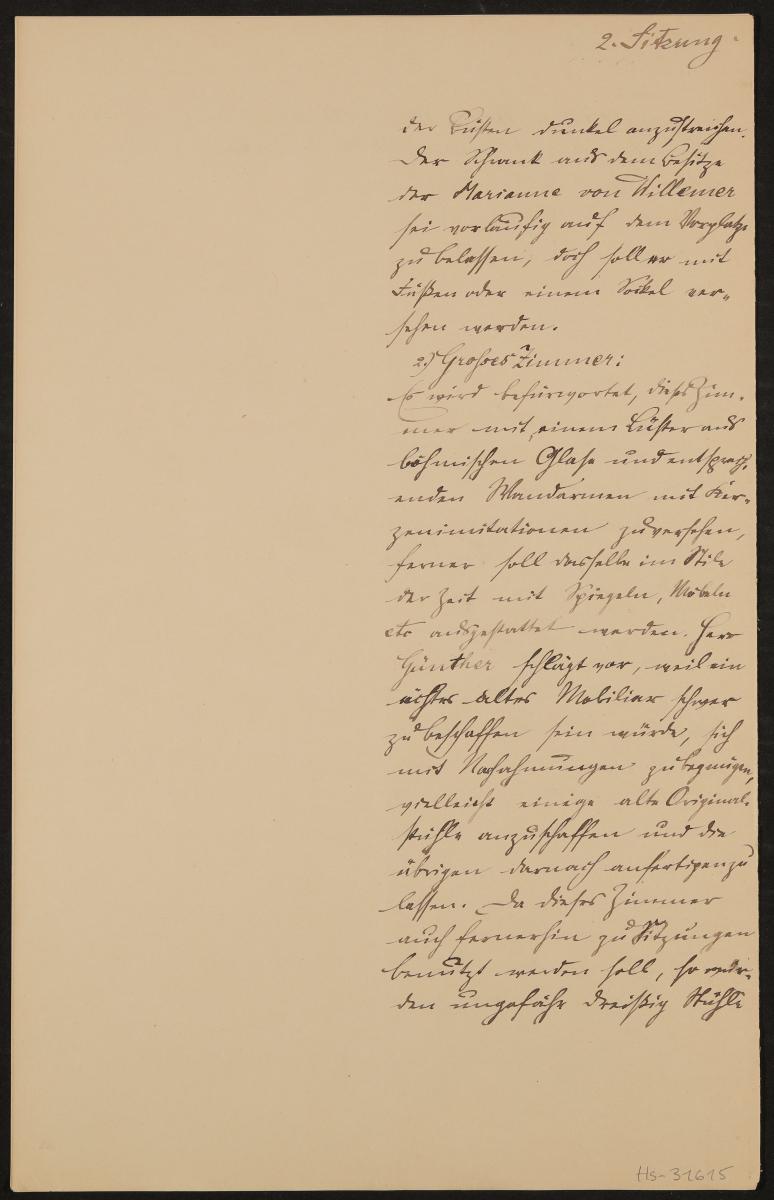 2. Sitzung.
der Büsten dunkel anzustreichen.
Der Schrank aus dem Besitze
der Marianne von Willemer
sei vorläufig auf dem Vorplatze
zu belassen, doch soll er mit
Füßen oder einem Sockel ver-
sehen werden.
2.) Grosses Zimmer:
Es wird befürwortet, dieses Zim-
mer mit einem Lüster aus
böhmischen Glase und entsprech-
enden Wandarmen mit Ker-
zenimitationen zu versehen,
ferner soll dasselbe im Stile
der Zeit mit Spiegeln, Möbeln
etc ausgestattet werden. Herr
Günther schlägt vor, weil ein
ächtes altes Mobiliar schwer
zu beschaffen sein würde, sich
mit Nachahmungen zu begnügen,
vielleicht einige alte Original-
stühle anzuschaffen und die
übrigen darnach anfertigen zu
lassen. Da dieses Zimmer
auch fernerhin zu Sitzungen
benützt werden soll, so wür-
den ungefähr dreißig Stühle
Hs-31615